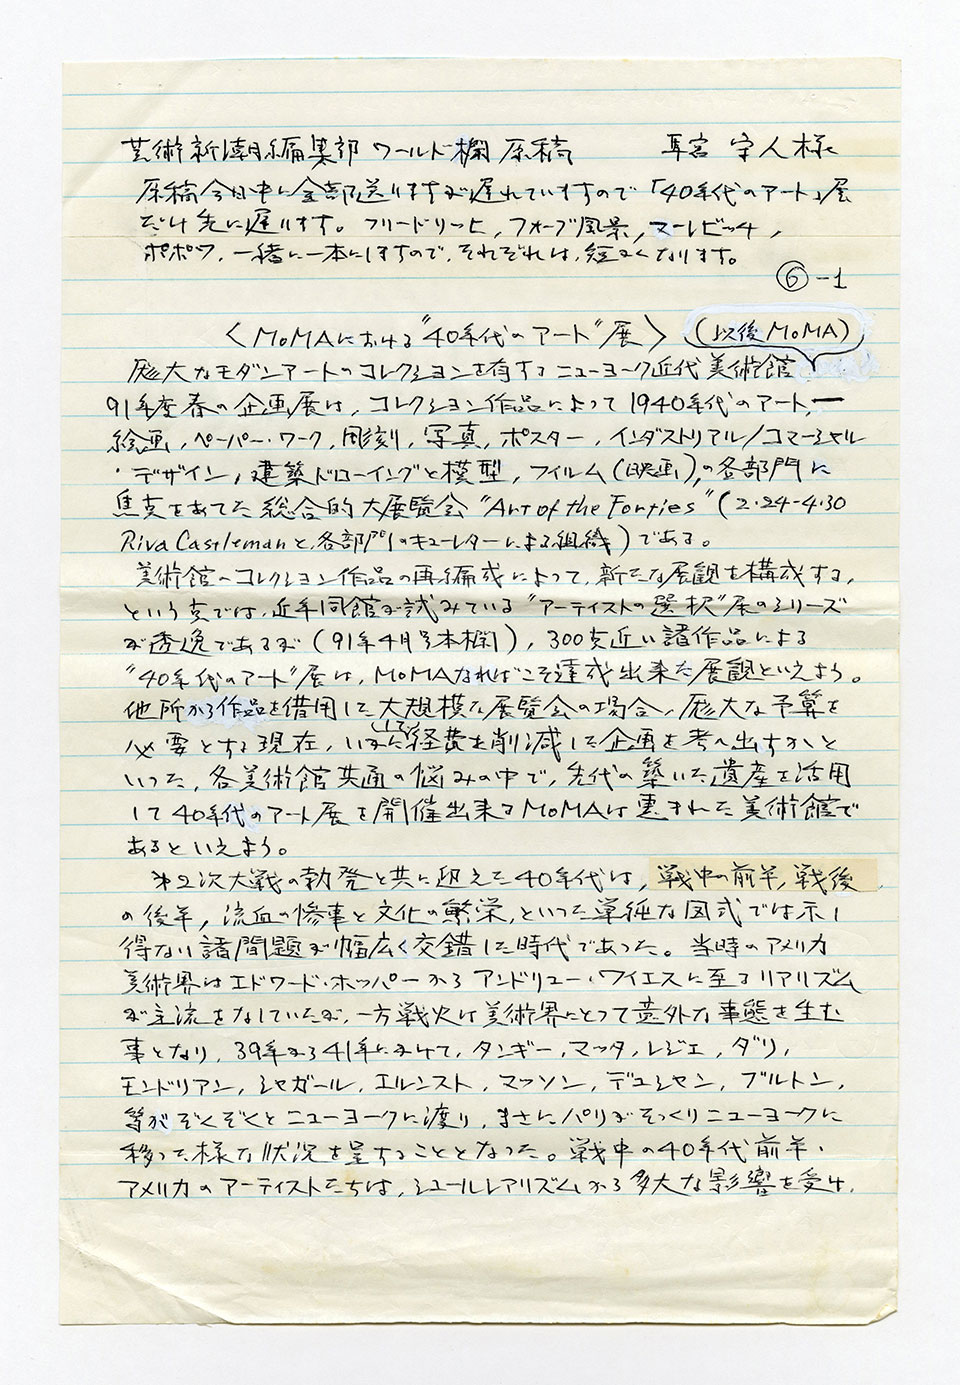 芸術新潮編集部 ワールド欄 原稿 宮 守人様
原稿今日中に全部送りますが遅れていますので「40年代のアート」展
だけ先に送ります。フリードリッヒ, フォーブ風景, マールビッチ,
ポポワ, 一緒に一本にしますので, それぞれは, 短くなります。
⑥-1
〈MoMAにおける"40年代のアート"展〉 (以後MoMA)
厖大なモダンアートのコレクションを有するニューヨーク近代美術館
91年度春の企画展は, コレクション作品によって1940年代のアート, ー
絵画, ペーパー・ワーク, 彫刻, 写真, ポスター, インダストリアル/コマーシャル
・デザイン, 建築ドローイングと模型, フィルム(映画), の各部門に
焦点をあてた総合的大展覧会"Art of the Forties"(2・24-4・30
Riva Castlemanと, 各部門のキューレターによる組織)である。
美術館のコレクション作品の再編成によって, 新たな展観を構成する,
という点では, 近年同館が試みている"アーティストの選択"展のシリーズ
が秀逸であるが(91年4月号本欄), 300点近い諸作品による
"40年代のアート"展は, MoMAなればこそ達成出来た展観といえよう。
他所から作品を借用した大規模な展覧会の場合, 厖大な予算を
必要とする現在, いかにして経費を削減した企画を考へ出すかと
いった, 各美術館共通の悩みの中で, 先代の築いた遺産を活用
して40年代のアート展を開催出来るMoMAは恵まれた美術館で
あるといえよう。
第2次大戦の勃発と共に迎えた40年代は, 戦中の前半, 戦後
の後半, 流血の惨事と文化の繁栄, といった単純な図式では示し
得ない諸問題が幅広く交錯した時代であった。当時のアメリカ
美術界はエドワード・ホッパーからアンドリュー・ワイエスに至るリアリズム
が主流をなしていたが, 一方戦火は美術界にとって意外な事態を生む
事となり, 39年から41年にかけて, タンギー, マッタ, レジェ, ダリ,
モンドリアン, シャガール, エルンスト, マッソン, デュシャン, ブルトン,
等がぞくぞくとニューヨークに渡り, まさにパリがそっくりニューヨークに
移った様な状況を呈することとなった。戦中の40年代前半・
アメリカのアーティストたちは, シュールレアリズムから多大な影響を受け,